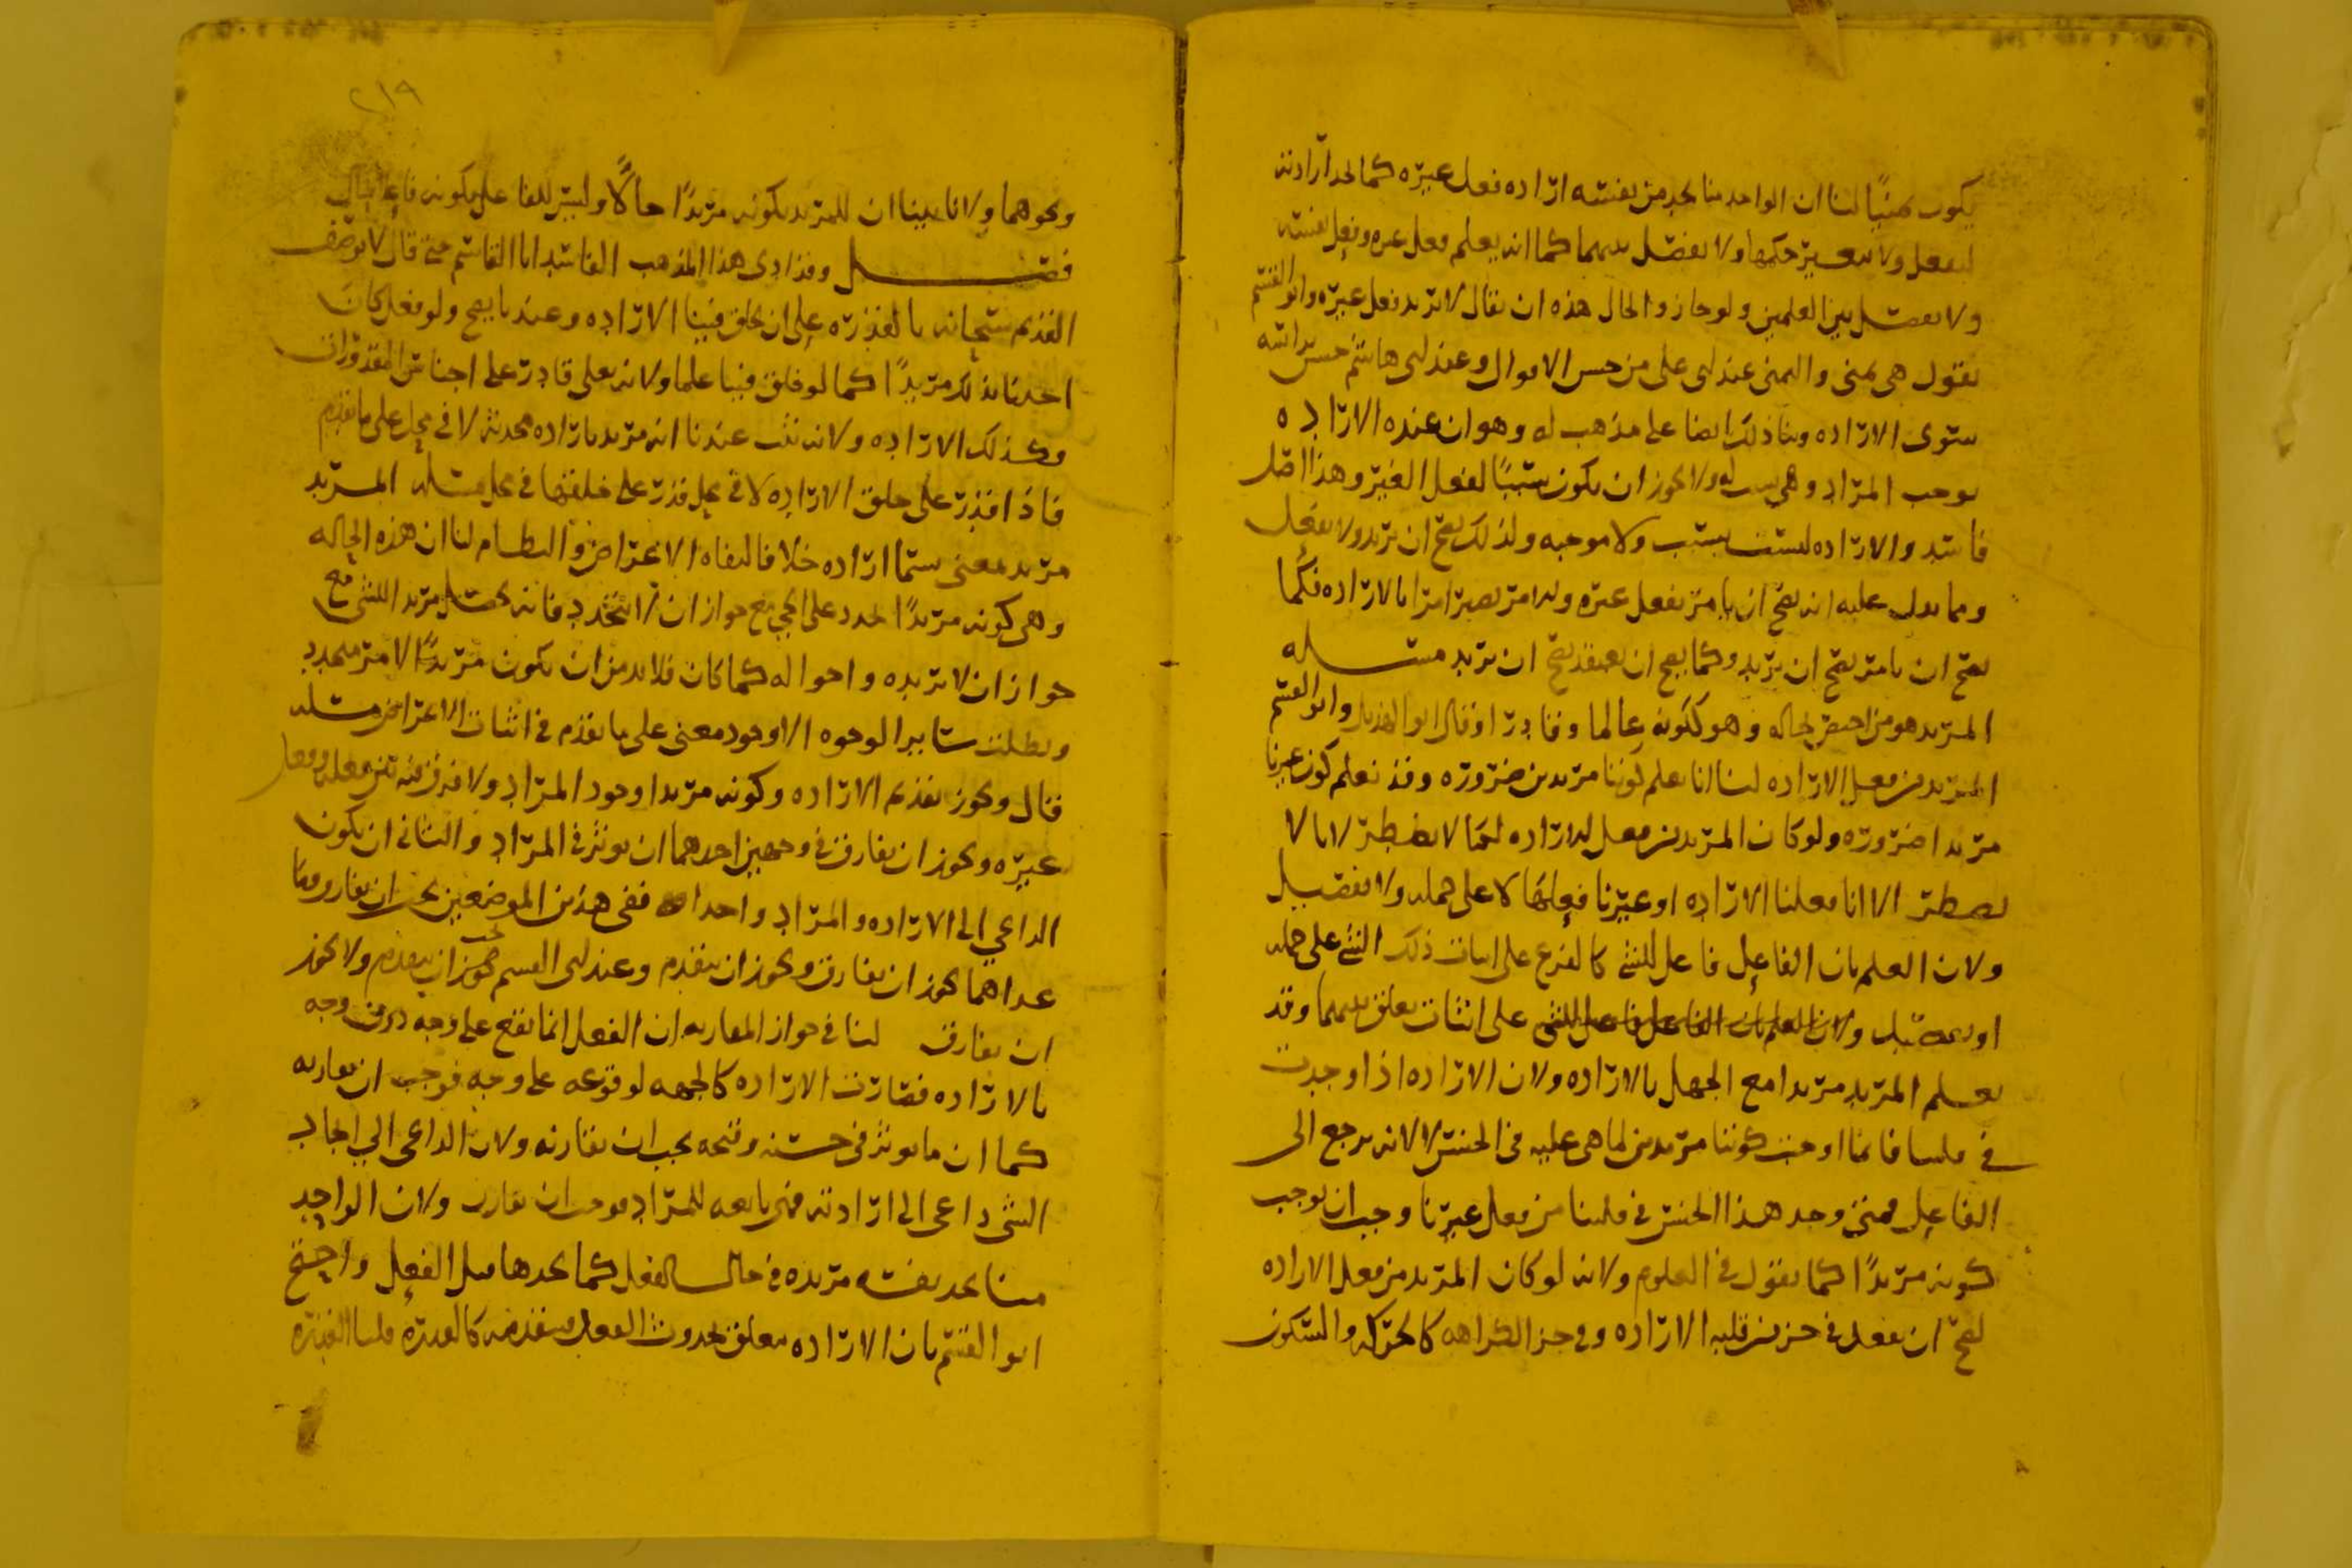 يكون تمنيًا لنا ان الواحد منا يجد من نفسه ارادة فعل غيره كما يجد ارادته
لفعله ولا يتغير حكمها ولا يفصل بينهما كما انه يعلم فعل غيره وفعل نفسه
ولا يفصل بين العلمين ولو جاز والحال هذه ان يقال لا يريد فعل غيره وابو القسم
يقول هي تمني والتمني عند ابي علي من جنس الاقوال وعند ابي هاشم جنس براسه
سوى الارادة وبنا ذلك ايضا على مذهب له وهو ان عنده الارادة
توجب المراد وهي سبب له ولا يجوز ان يكون سببًا لفعل الغير وهذا اصل
فاسد والارادة ليست بسبب ولا موجبه ولذلك يصح ان يريد ولا يفعل
ومما يدل عليه انه يصح ان يامر بفعل غيره والامر يصير امرا بالارادة فكما
يصح ان يامر يصح ان يريد وكما يصح ان يعتقد يصح ان يريد مسئله
المريد هو من اختص بحاله وهو ككونه عالما وقادرا وقال ابو الهذيل وابو القسم
المريد من فعل الارادة لنا انا نعلم كوننا مريدين ضرورة وقد نعلم كون غيرنا
مريدا ضرورة ولو كان المريد من فعل الارادة لما لا يضطر لانا لا
نضطر الا انا فعلنا الارادة او غيرنا فعلها لا على جمله ولا تفصيل
ولان العلم بان الفاعل فاعل للشي كالفرع على اثبات ذلك الشي على جمله
او تفصيل ولان العلم بان الفاعل فاعل للشي على اثبات تعلق بينهما وقد
يعلم المريد مريدا مع الجهل بالارادة ولان الارادة اذا وجدت
في قلبنا فانما اوجبت كوننا مريدين لما هي عليه في الجنس لا لانه يرجع الى
الفاعل فمتى وجد هذا الجنس في قلبنا من فعل غيرنا وجب ان يوجب
كونه مريدًا كما نقول في العلوم ولانه لو كان المريد من فعل الارادة
لصح ان يفعل في جزء من قلبه الارادة وفي جزء الكراهه كالحركه والسكون
٢١٩
ونحوهما ولانا بينا ان للمريد بكونه مريدًا حالًا وليس للفاعل بكونه فاعلا حال
فصل وقد ادى هذا المذهب الفاسد ابا القاسم حتى قال لا يوصف
القديم سبحانه بالقدرة على ان يخلق فينا الارادة وعندنا يصح ولو فعل كان
احدنا بذلك مريدًا كما لو خلق فينا علما ولانه تعلى قادر على اجناس المقدورات
وكذلك الارادة ولانه ثبت عندنا انه مريد بارادة محدثه لا في محل على ما تقدم
فاذا قدر على خلق الارادة لا في محل قدر على خلقها في محل مسئله المريد
مريد لمعنى يسمى ارادة خلافا لنفاه الاعراض والنظام لنا ان هذه الحاله
وهي كونه مريدًا تجدد على الحي مع جواز ان لا تتجدد فانه يحصل مريد الشي مع
جواز ان لا يريده واحواله كما كان فلا بد من ان يكون مريدًا لامر متجدد
وبطلت ساير الوجوه الا وجود معنى على ما تقدم في اثبات الاعراض مسئله
قال ويجوز تقدم الارادة وكونه مريدا وجود المراد ولا فرق فيه بين فعله وفعل
غيره ويجوز ان يفارق في وجهين احدهما ان يوثر في المراد والثاني ان يكون
الداعي الى الارادة والمراد واحدا ففي هذين الموضعين يجب ان يقارن وما
عداهما يجوز ان يقارن ويجوز ان يتقدم وعند ابي القسم يجب ان يتقدم ولا يجوز
ان يقارن لنا في جواز المقارنه ان الفعل انما يقع على وجه دون وجه
بالارادة فصارت الارادة كالجهه لوقوعه على وجه فوجب ان يقارنه
كما ان ما يوثر في حسنه وقبحه يجب ان يقارنه ولان الداعي الى ايجاد
الشي داعي الى ارادته فهي تابعه للمراد فوجب ان تقارن ولان الواحد
منا يجد نفسه مريدة في حال الفعل كما يجدها قبل الفعل واحتج
ابو القسم بان الارادة تتعلق بحدوث الفعل فيتقدمه كالقدرة قلنا القدرة